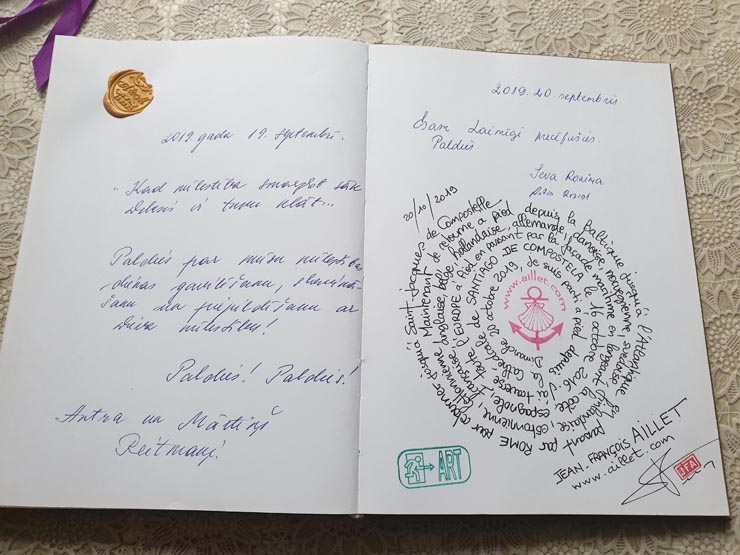 2019. gada 19. septembrī.
"Kad mīlestība smaržot sāk
Dievs ir tuvu klāt...
Paldies par mūsu mīlestības
dūkas
un piepildīšanu ar
Dieva mīlestību!
Paldies! Paldies!
Antra un Mārtiņš
Reitmaņi!
2019. 20. septembris
Esam Laimīgi precējušies.
Paldies.
Ieva
20/10/2019
Dimanche 20 octobre 2019, je suis parti à pied depuis
la cathédrale de SANTIAGO DE COMPOSTELA le 16 octobre 2016. J'ai traversé
toute l'EUROPE à Pied en passant par la façade maritime en longeant la côte espagnole,
française, anglaise, belge, hollandaise, allemande, danoise, norvégienne, suédoise, finlandaise, estonienne,
Maintenant je retourne à pied depuis la Baltique jusqu'à l'Atlantique en passant par
ROME pour retourner jusqu'à Saint-Jacques de Compostelle
www.aillet.com
JEAN-FRANÇOIS AILLET
www.aillet.com
JFA
ART